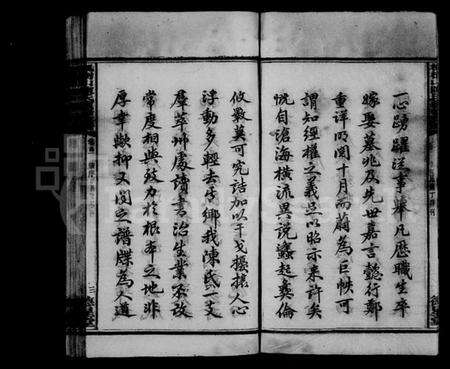 一心踴躍從事舉凡歷職生卒
嫁娶墓兆及先世嘉言懿行鄭
重詳明閱十月而葺為巨帙可
謂知經權之義足以昭示來許矣
慨自滄海橫流異說蠭起奠倫
攸斁莫可究詰加以干戈擾攘人心
浮動多輕去其鄉我陳氏一支
羣萃州處讀書治生業不改
常度相與致力於根本之地非
厚幸歟抑又聞之譜牒為人道